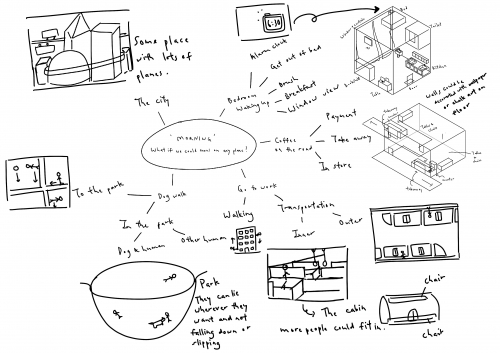 Some place
with lots of
planes.
6:30
Alarm clock
Get out of bed
Brush
Breakfast
Window view
Bedroom
Waking up
The city
"MORNING"
What if we could move on any plane?
Coffee
on the road
Payment
Take away
In store
Bed
Toilet
Kitchen
Sofa
Door
To the park
Dog walk
In the park
Dog & human
Other human
Go to work
Walking
Transportation
Inner
Outer
Park
They can lie
wherever they
want and not
falling down or
slipping
The cabin
more people could fit in.
chair
chair